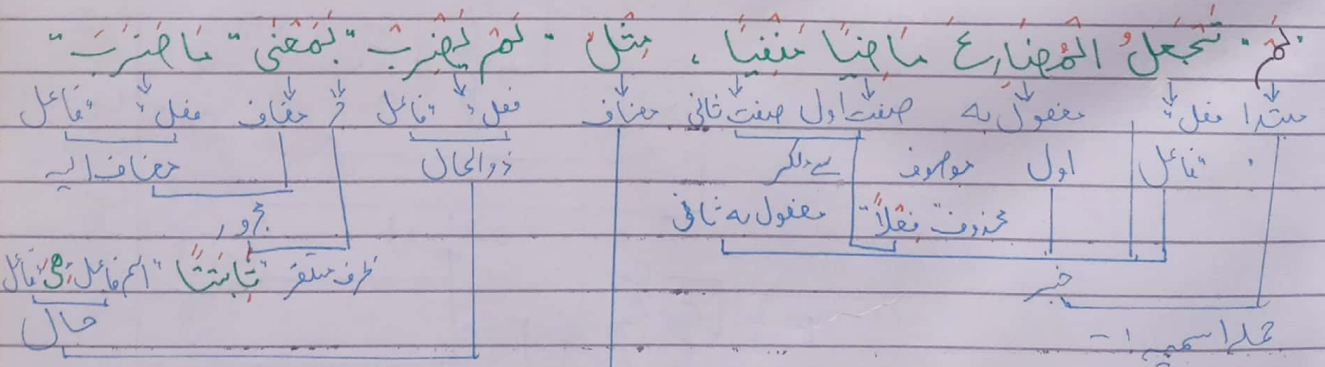 "لَمْ" تَجْعَلُ الْمُضَارِعَ مَاضِيًا مَنْفِيًا ، مِثْلُ "لَمْ يَضْرِبْ" بِمَعْنٰى "مَا ضَرَبَ"
مبتدا فعل مفعول به صفت اول صفت ثانی مضاف فعل فاعل مضاف فعل فاعل
فاعل اول موصوف سے ملکر ذوالحال مضاف الیہ
محذوف "فِعْلًا" مفعول به ثانی مجرور
خبر ظرف مستقر "ثَابِتًا" اسم فاعل فاعل
جملہ اسمیہ ۱- حال